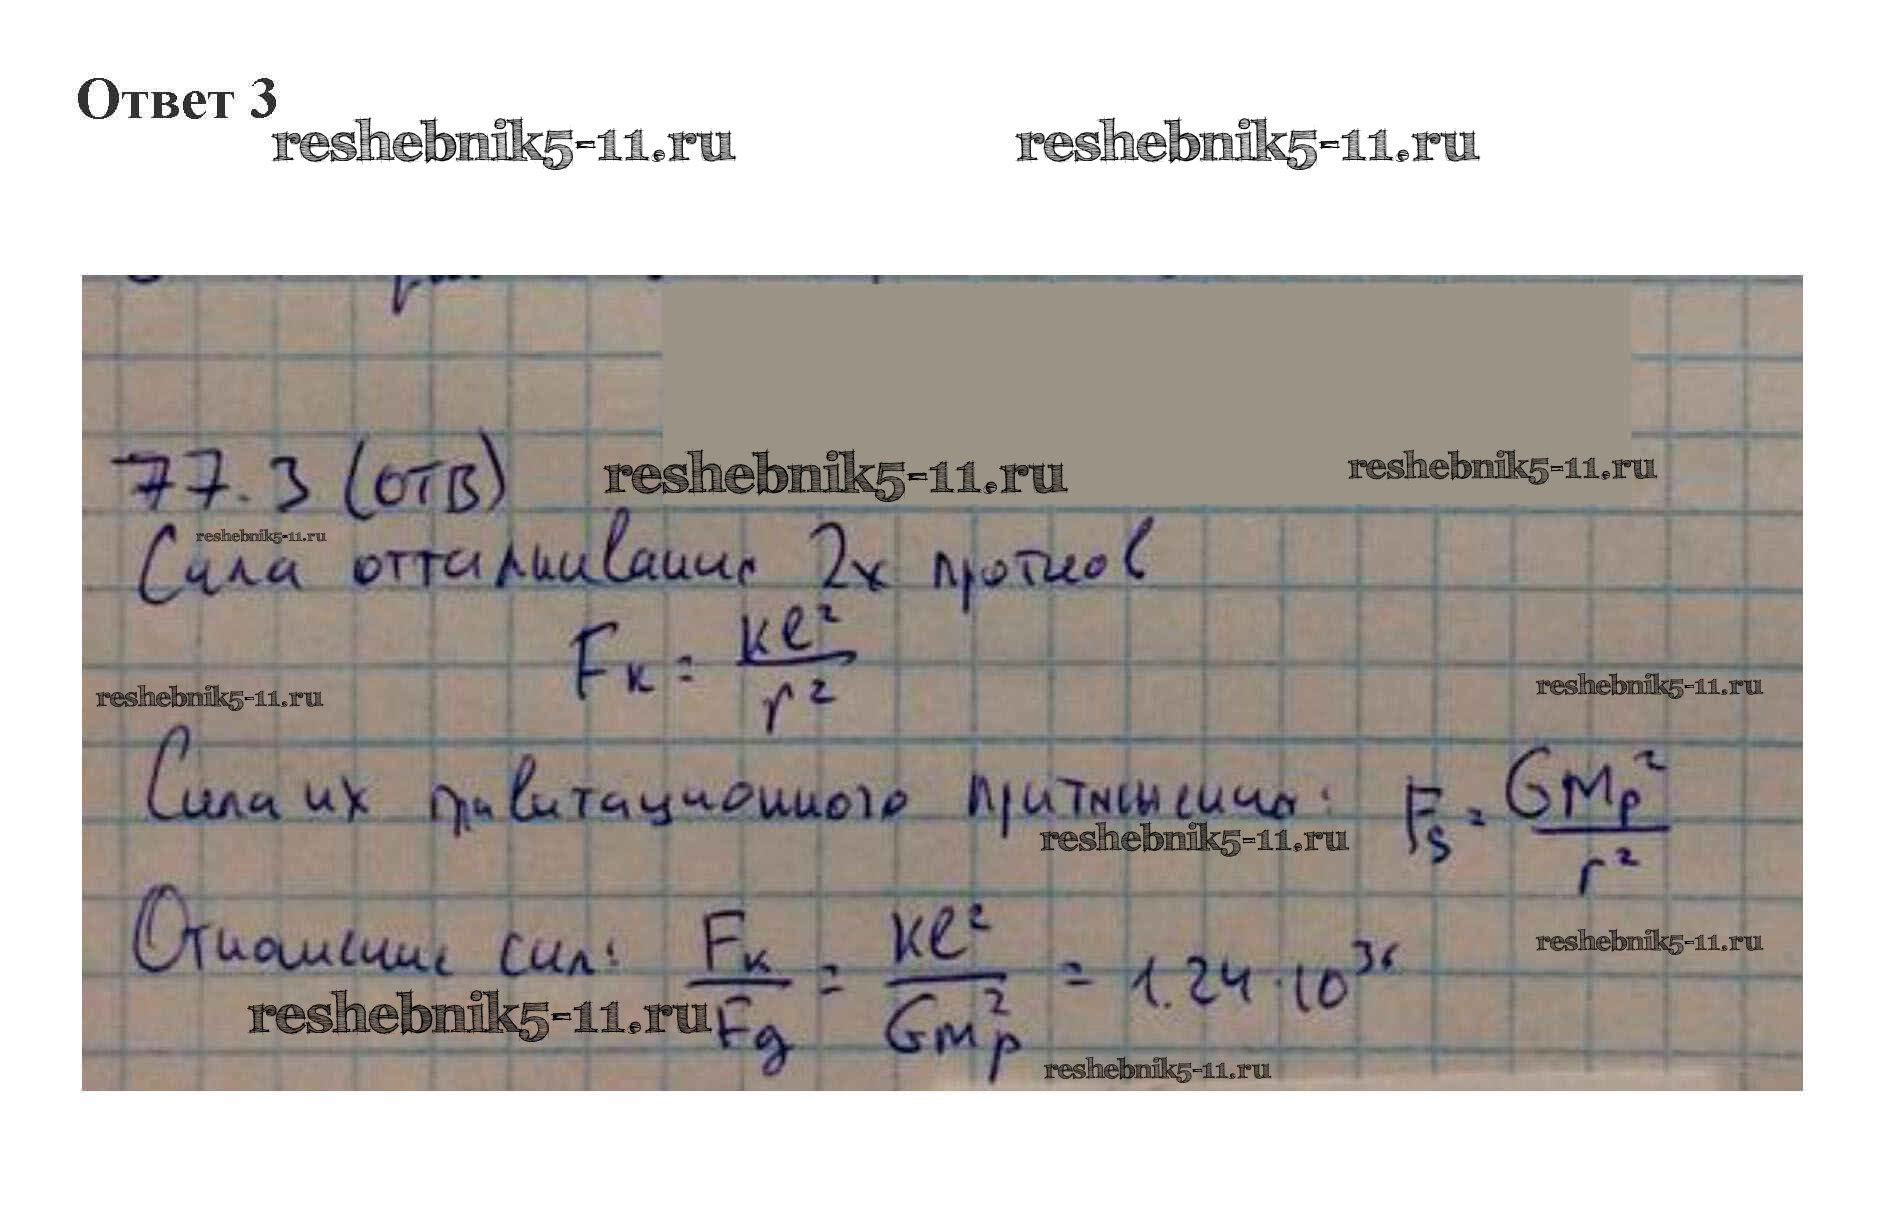 Ответ 3
reshebnik5-11.ru reshebnik5-11.ru
77.3 (ОТВ)
reshebnik5-11.ru reshebnik5-11.ru
reshebnik5-11.ru
Сила отталкивания 2х протнов
Fк = ke²/r²
reshebnik5-11.ru reshebnik5-11.ru
Сила их гравитационного притяжения: Fg = Gmp²/r²
reshebnik5-11.ru
Отношение сил: Fк/Fg = ke²/Gmp² = 1.24·10³⁶
reshebnik5-11.ru
reshebnik5-11.ru
reshebnik5-11.ru